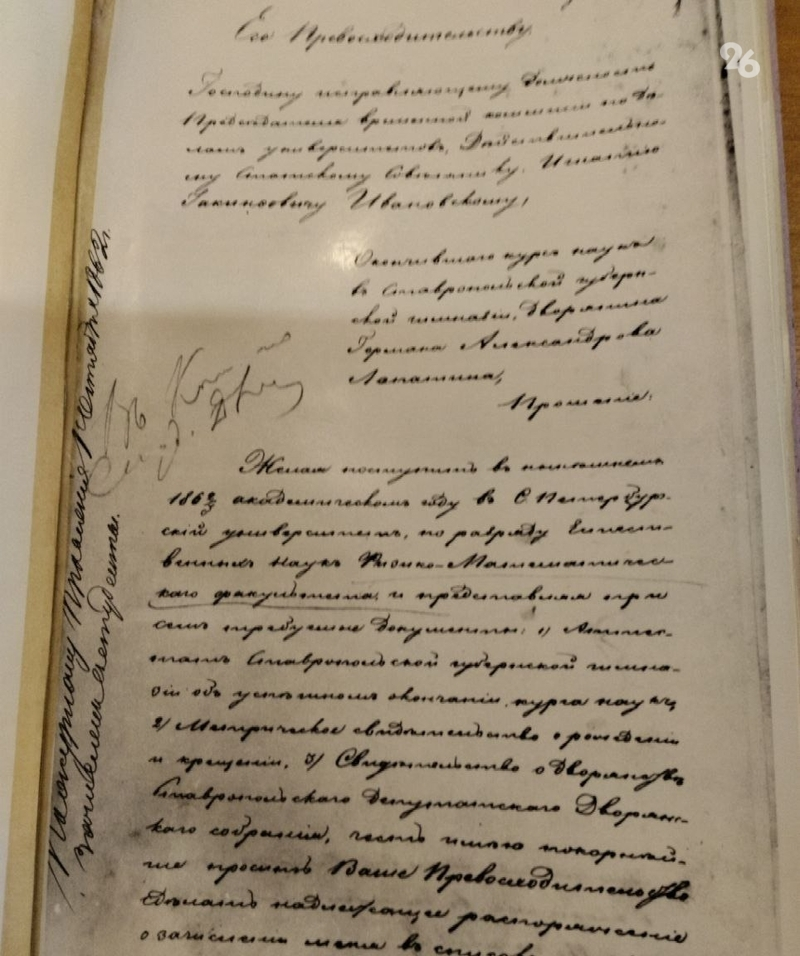 26
Его Превосходительству
Господину исправляющему Должность
Председателя временной комиссии по Де-
ламъ университетовъ, Действительно-
му Статскому Советнику Игнатию
Гакинфовичу Ивановскому,
Окончившаго курсъ наукъ
въ Ставропольской губерн-
ской гимназіи, Дворянина
Германа Александрова
Лопатина,
Прошеніе.
Желая поступить въ нынешнемъ
1862/3 академическомъ году въ С. Петербург-
скій университетъ, по разряду Естест-
венныхъ Наукъ Физико-Математичес-
каго факультета, и представляя при
семъ требуемые Документы: 1) Аттес-
татъ Ставропольской губернской гимна-
зіи объ успешномъ окончаніи курса наукъ,
2) Метрическое свидетельство о рожденіи
и крещеніи, 3) Свидетельство о Дворянстве
Ставропольскаго Депутатскаго Дворянс-
каго собранія, честь имею покорней-
ше просить Ваше Превосходительство
Сделать надлежащее распоряженіе
о зачисленіи меня въ
Правленія 1862 г.